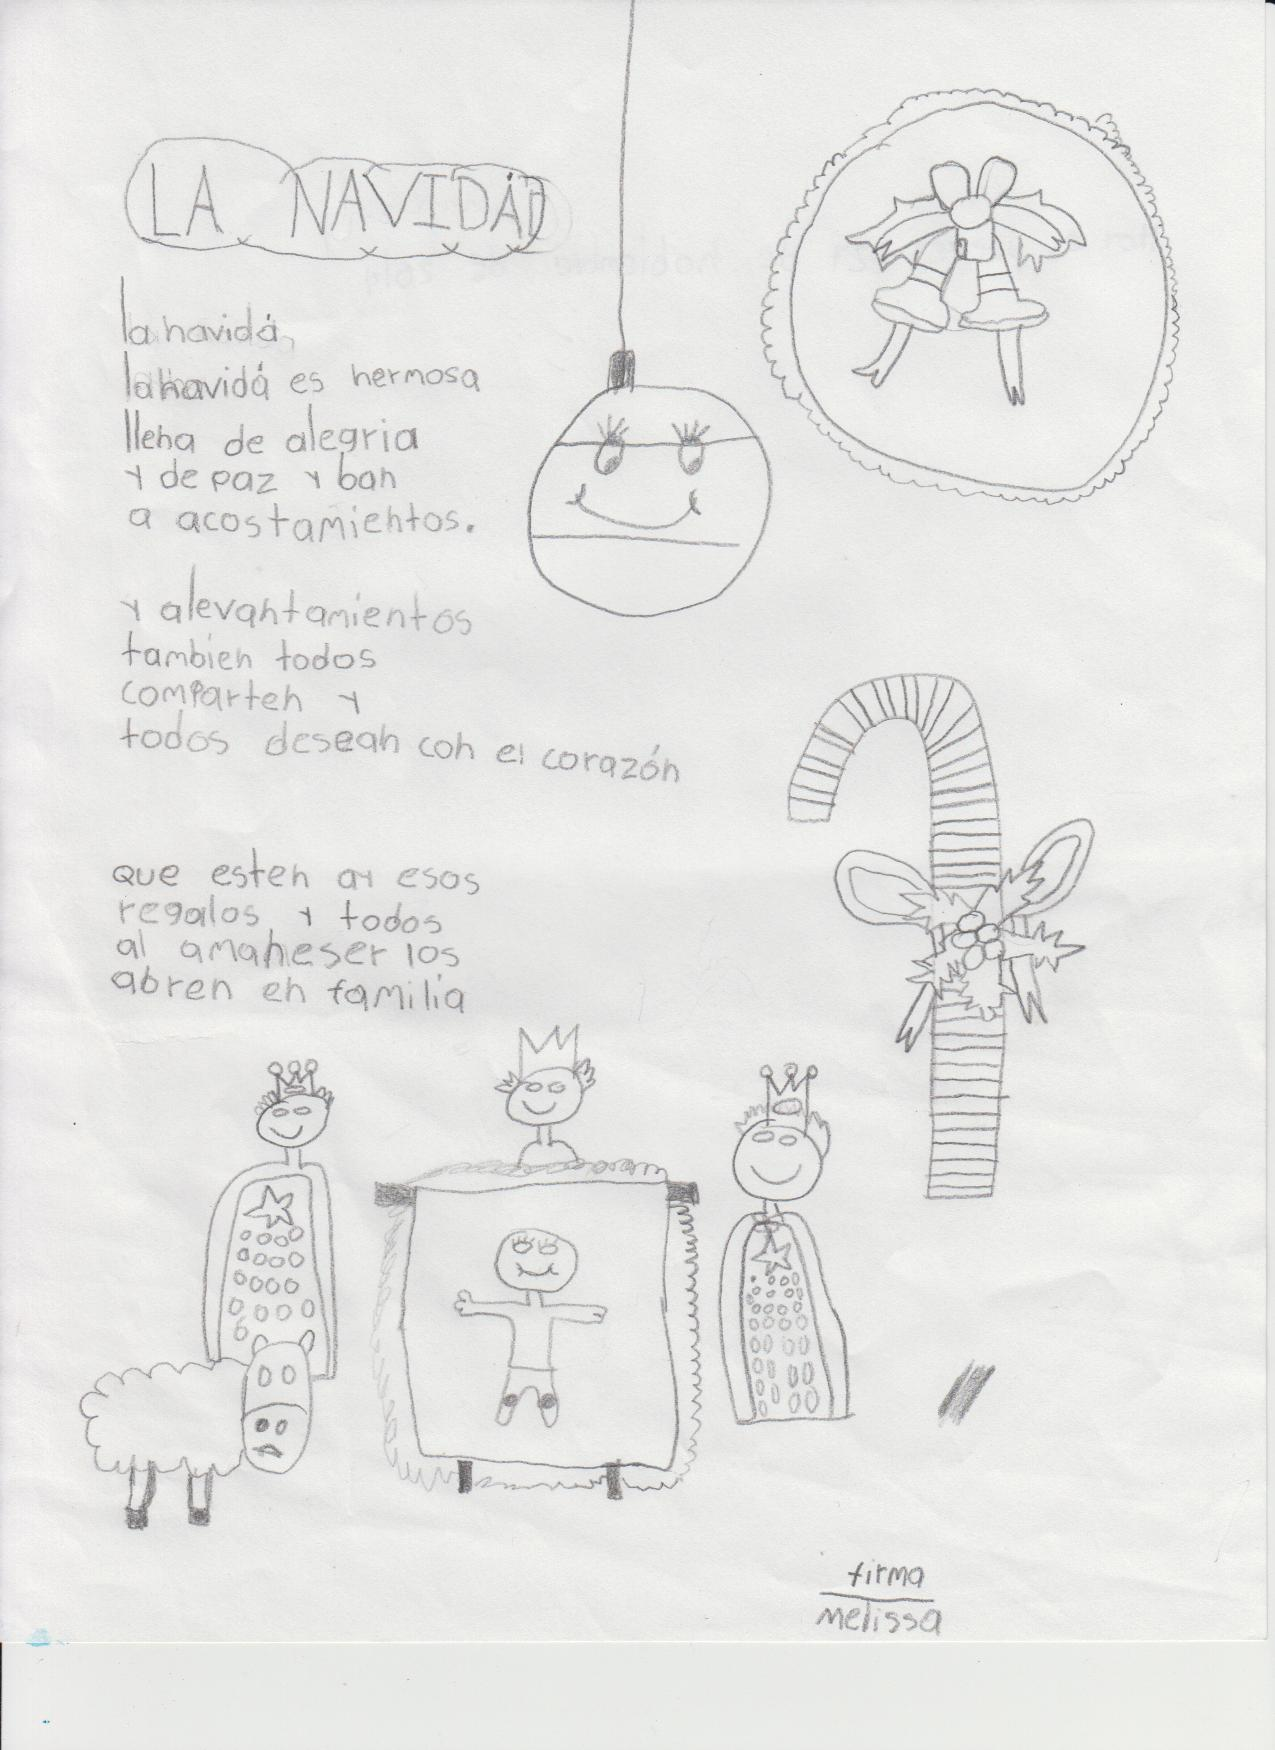 LA NAVIDÁD
la navidá,
la navidá es hermosa
llena de alegria
y de paz y ban
a acostamientos.
y alevantamientos
tambien todos
comparten y
todos desean con el corazón
que esten ay esos
regalos y todos
al amaneser los
abren en familia
firma
melissa